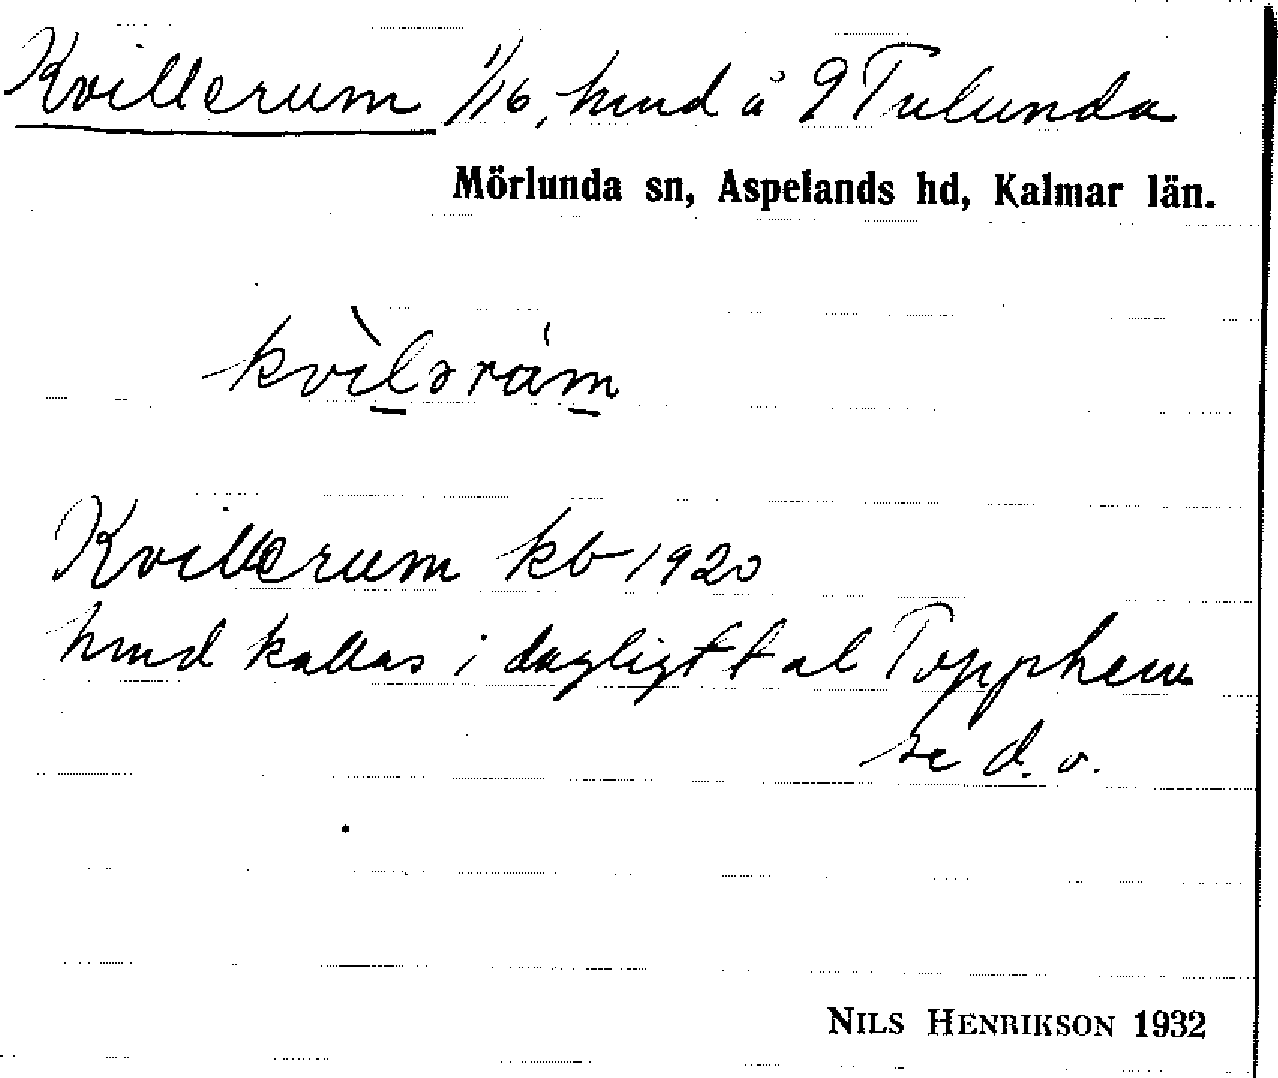 Kvillerum 1/16, hmd å 9 Tulunda
Mörlunda sn, Aspelands hd, Kalmar län.
kvìləråm
Kvillerum kb 1920
hmd kallas i dagligt tal Topphem
se d. o.
NILS HENRIKSON 1932